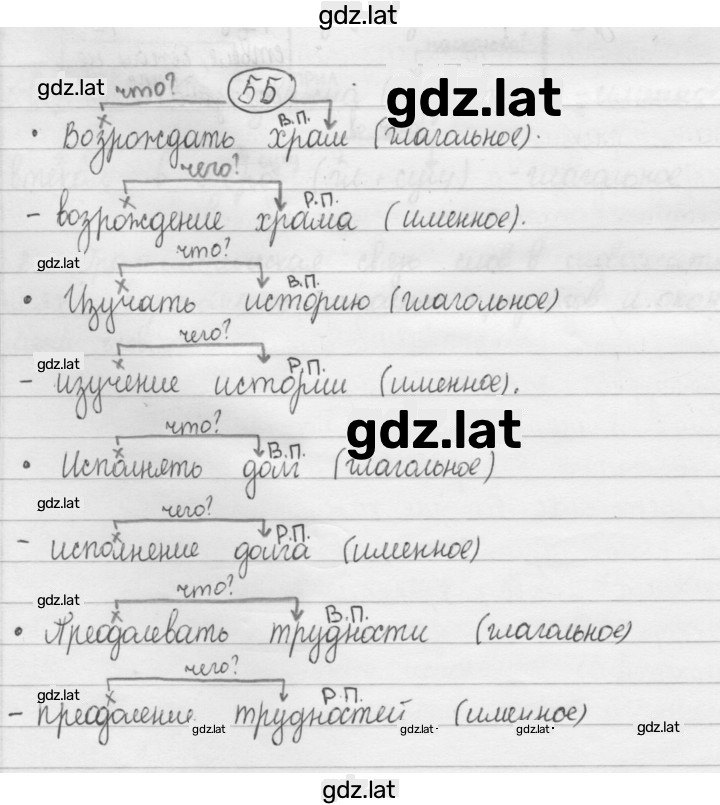 gdz.lat
55
gdz.lat что? gdz.lat
В.П.
• Возрождать храм (глагольное).
чего?
Р.П.
- возрождение храма (именное).
gdz.lat что?
В.П.
• Изучать историю (глагольное)
чего?
gdz.lat Р.П.
- изучение истории (именное).
что? gdz.lat
В.П.
• Исполнять долг (глагольное)
gdz.lat чего?
Р.П.
- исполнение долга (именное)
gdz.lat что?
В.П.
• Преодолевать трудности (глагольное)
чего?
gdz.lat Р.П.
- преодоление трудностей (именное)
gdz.lat gdz.lat gdz.lat gdz.lat
gdz.lat